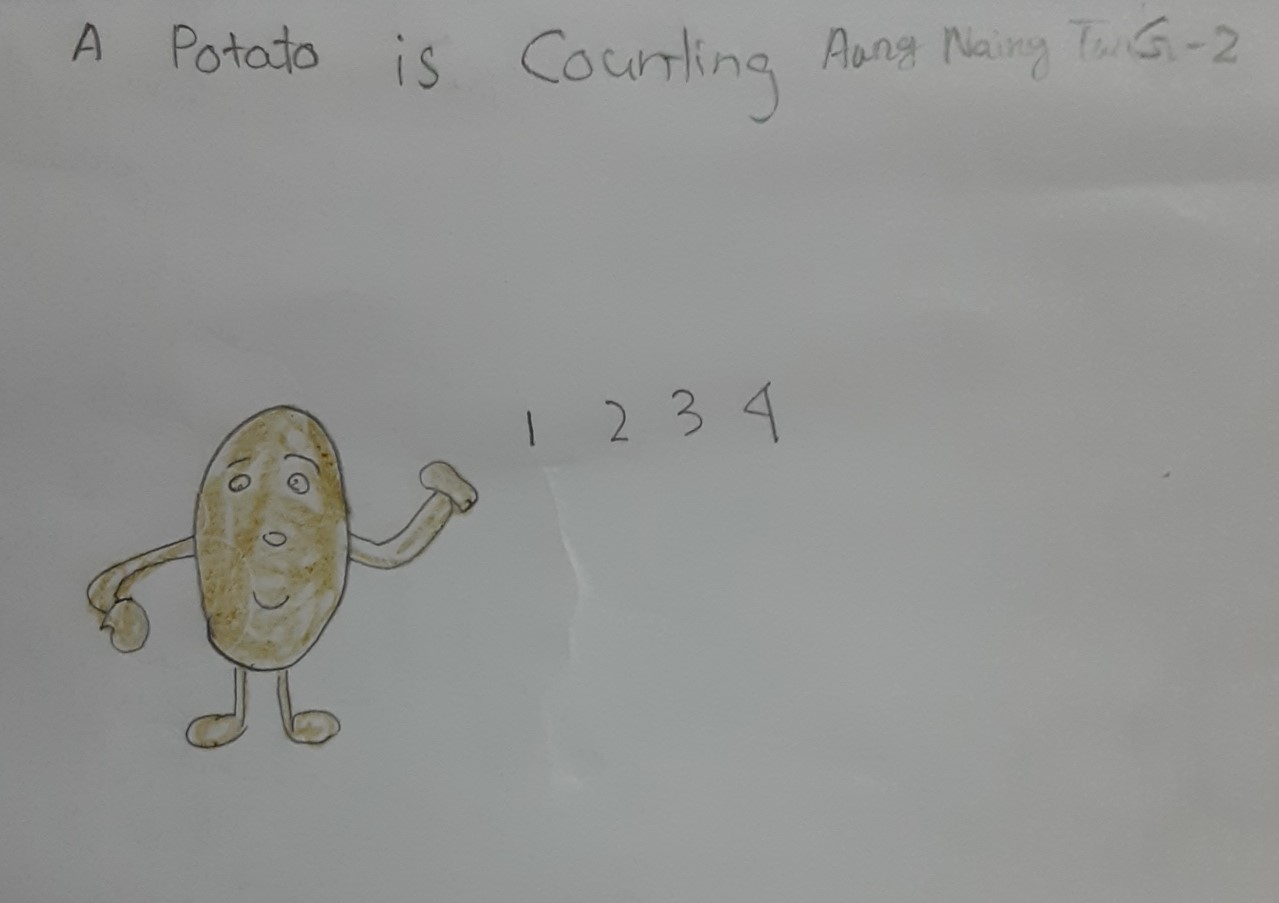 A Potato is Counting Aung Naing G-2
1 2 3 4